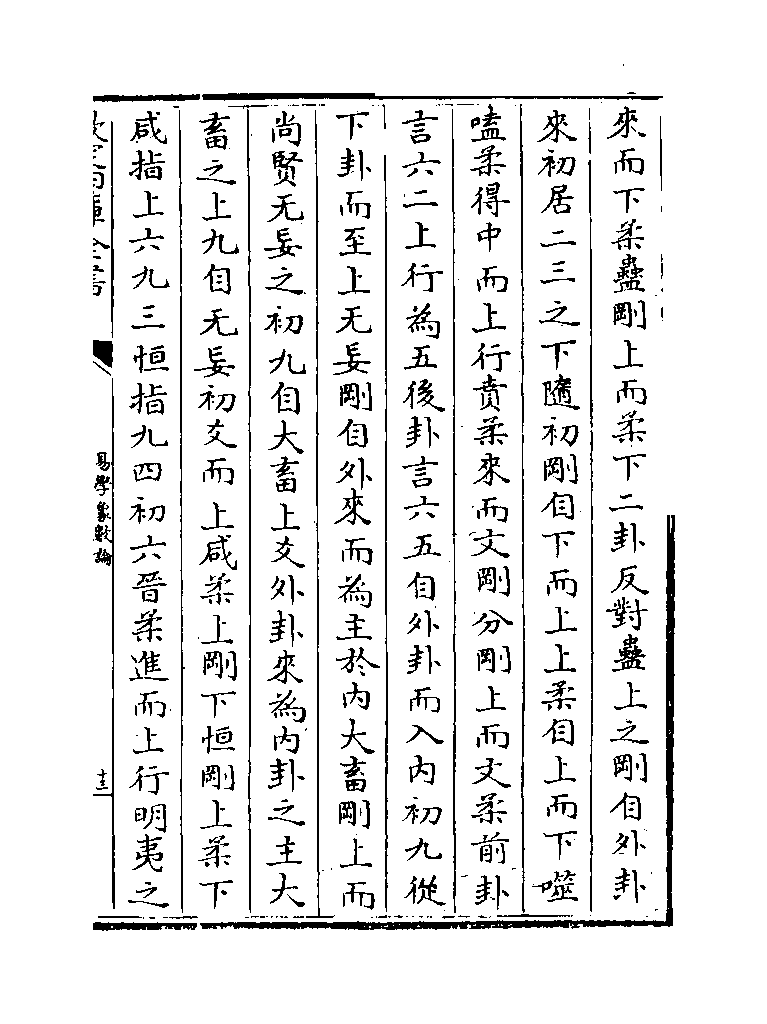 來而下柔蠱剛上而柔下二卦反對蠱上之剛自外卦
來初居二三之下隨初剛自下而上上柔自上而下噬
嗑柔得中而上行賁柔來而文剛分剛上而文柔前卦
言六二上行為五後卦言六五自外卦而入内初九從
下卦而至上无妄剛自外來而為主於内大畜剛上而
尚賢无妄之初九自大畜上爻外卦來為内卦之主大
畜之上九自无妄初爻而上咸柔上剛下恒剛上柔下
咸指上六九三恒指九四初六晉柔進而上行明夷之
欽定四庫全書
易學象數論
十三